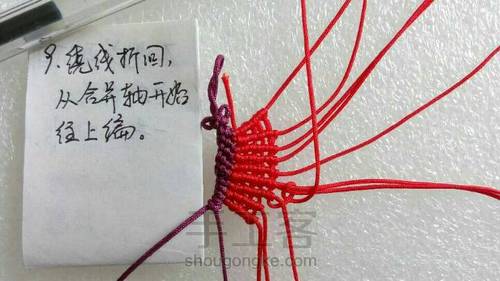 9.绕线折回,
从合并轴开始
往上编。
手工客
shougongke.com